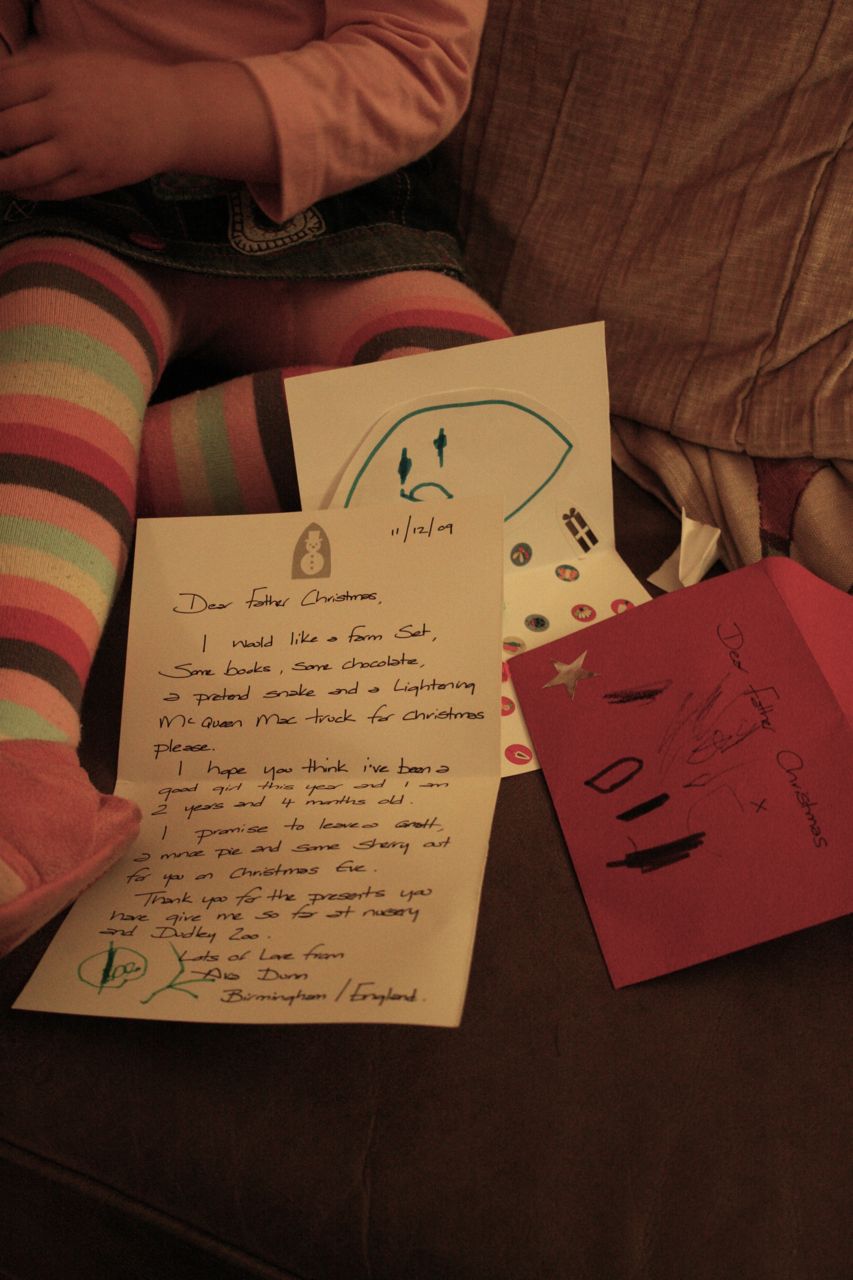 11/12/09
Dear Father Christmas,
I would like a farm set,
Some books, some chocolate,
a pretend snake and a Lightening
McQueen Mac truck for Christmas
please.
I hope you think i've been a
good girl this year and I am
2 years and 4 months old.
I promise to leave a carrot,
a mince pie and some sherry out
for you on Christmas Eve.
Thank you for the presents you
have give me so far at nursery
and Dudley Zoo.
Lots of Love from
Ava Dunn
Birmingham / England.
Dear Father Christmas
x